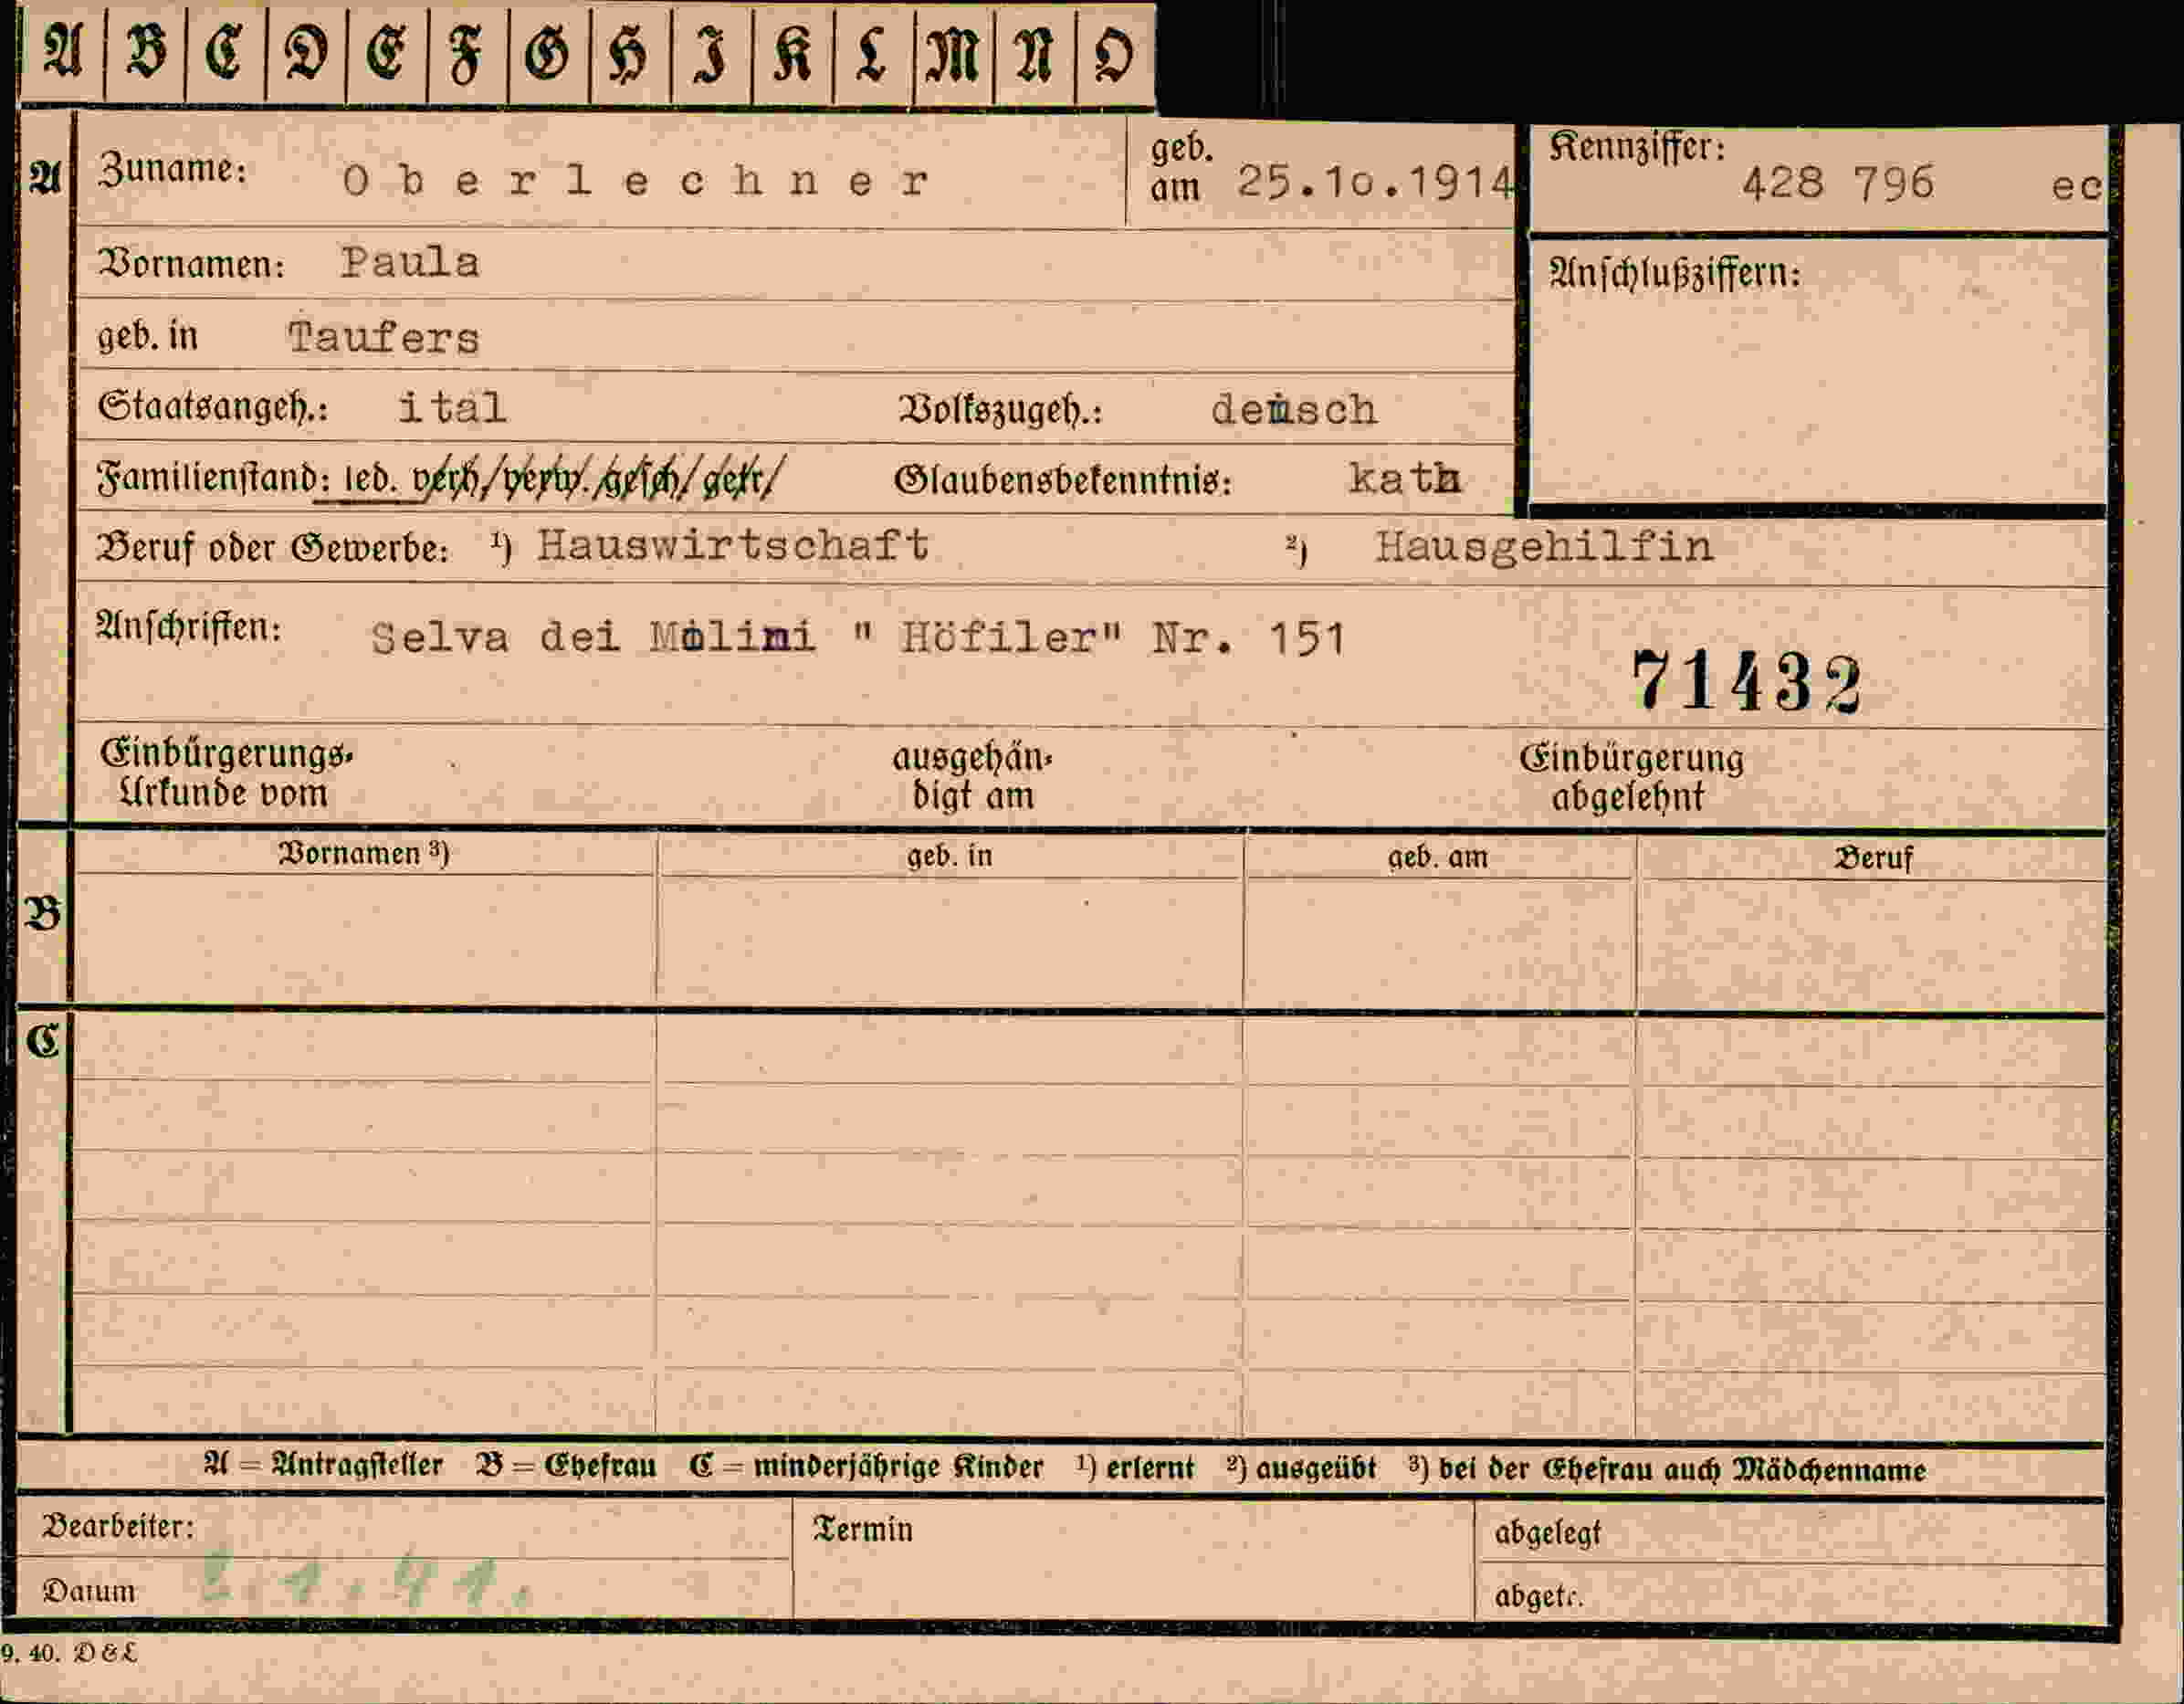 A B C D E F G H I K L M N O
A
Zuname: Oberlechner geb. am 25.10.1914 Kennziffer: 428 796 ec
Vornamen: Paula
Anschlußziffern:
geb. in Taufers
Staatsangeh.: ital Volkszugeh.: deusch
Familienstand: led. verh/verw./gesch/getr/ Glaubensbekenntnis: kath
Beruf oder Gewerbe: ¹) Hauswirtschaft ²) Hausgehilfin
Anschriften: Selva dei Molini " Höfiler" Nr. 151
71432
Einbürgerungs- ausgehän- Einbürgerung
Urkunde vom digt am abgelehnt
Vornamen ³) geb. in geb. am Beruf
B
C
A = Antragsteller B = Ehefrau C = minderjährige Kinder ¹) erlernt ²) ausgeübt ³) bei der Ehefrau auch Mädchenname
Bearbeiter: Termin abgelegt
Datum 1.41. abgetr.
9. 40. D & L